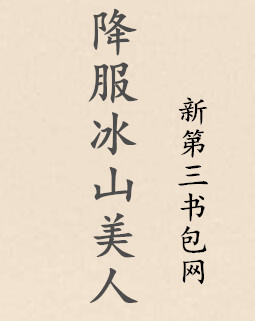 降服冰山美人
新第三书包网